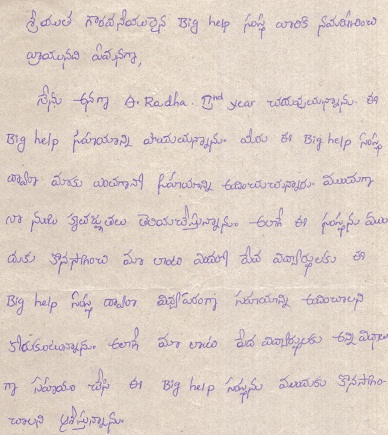 శ్రీయుత గౌరవనీయులైన Big help సంస్థ వారికి నమస్కరించి
వ్రాయునది ఏమనగా,
నేను అనగా A. Radha. IInd year చదువుచున్నాను. ఈ
Big help సహాయాన్ని పొందుచున్నాను. మీరు ఈ Big help సంస్థ
ద్వారా మాకు ఎంతగానో సహాయాన్ని అందించుచున్నారు. ముందుగా
నా కృతజ్ఞతలు తెలియచేస్తున్నాను. అలాగే ఈ సంస్థను ముం
దుకు కొనసాగించి మా లాంటి పేద విద్యార్థులకు ఈ
Big help సంస్థ ద్వారా విద్యాపరంగా సహాయాన్ని అందించాలని
కోరుకుంటున్నాను. అలాగే మా లాంటి పేద విద్యార్థులకు అన్ని విధాలు
గా సహాయం చేసి ఈ Big help సంస్థను ముందుకు కొనసాగిం
చాలని ఆశిస్తున్నాను.